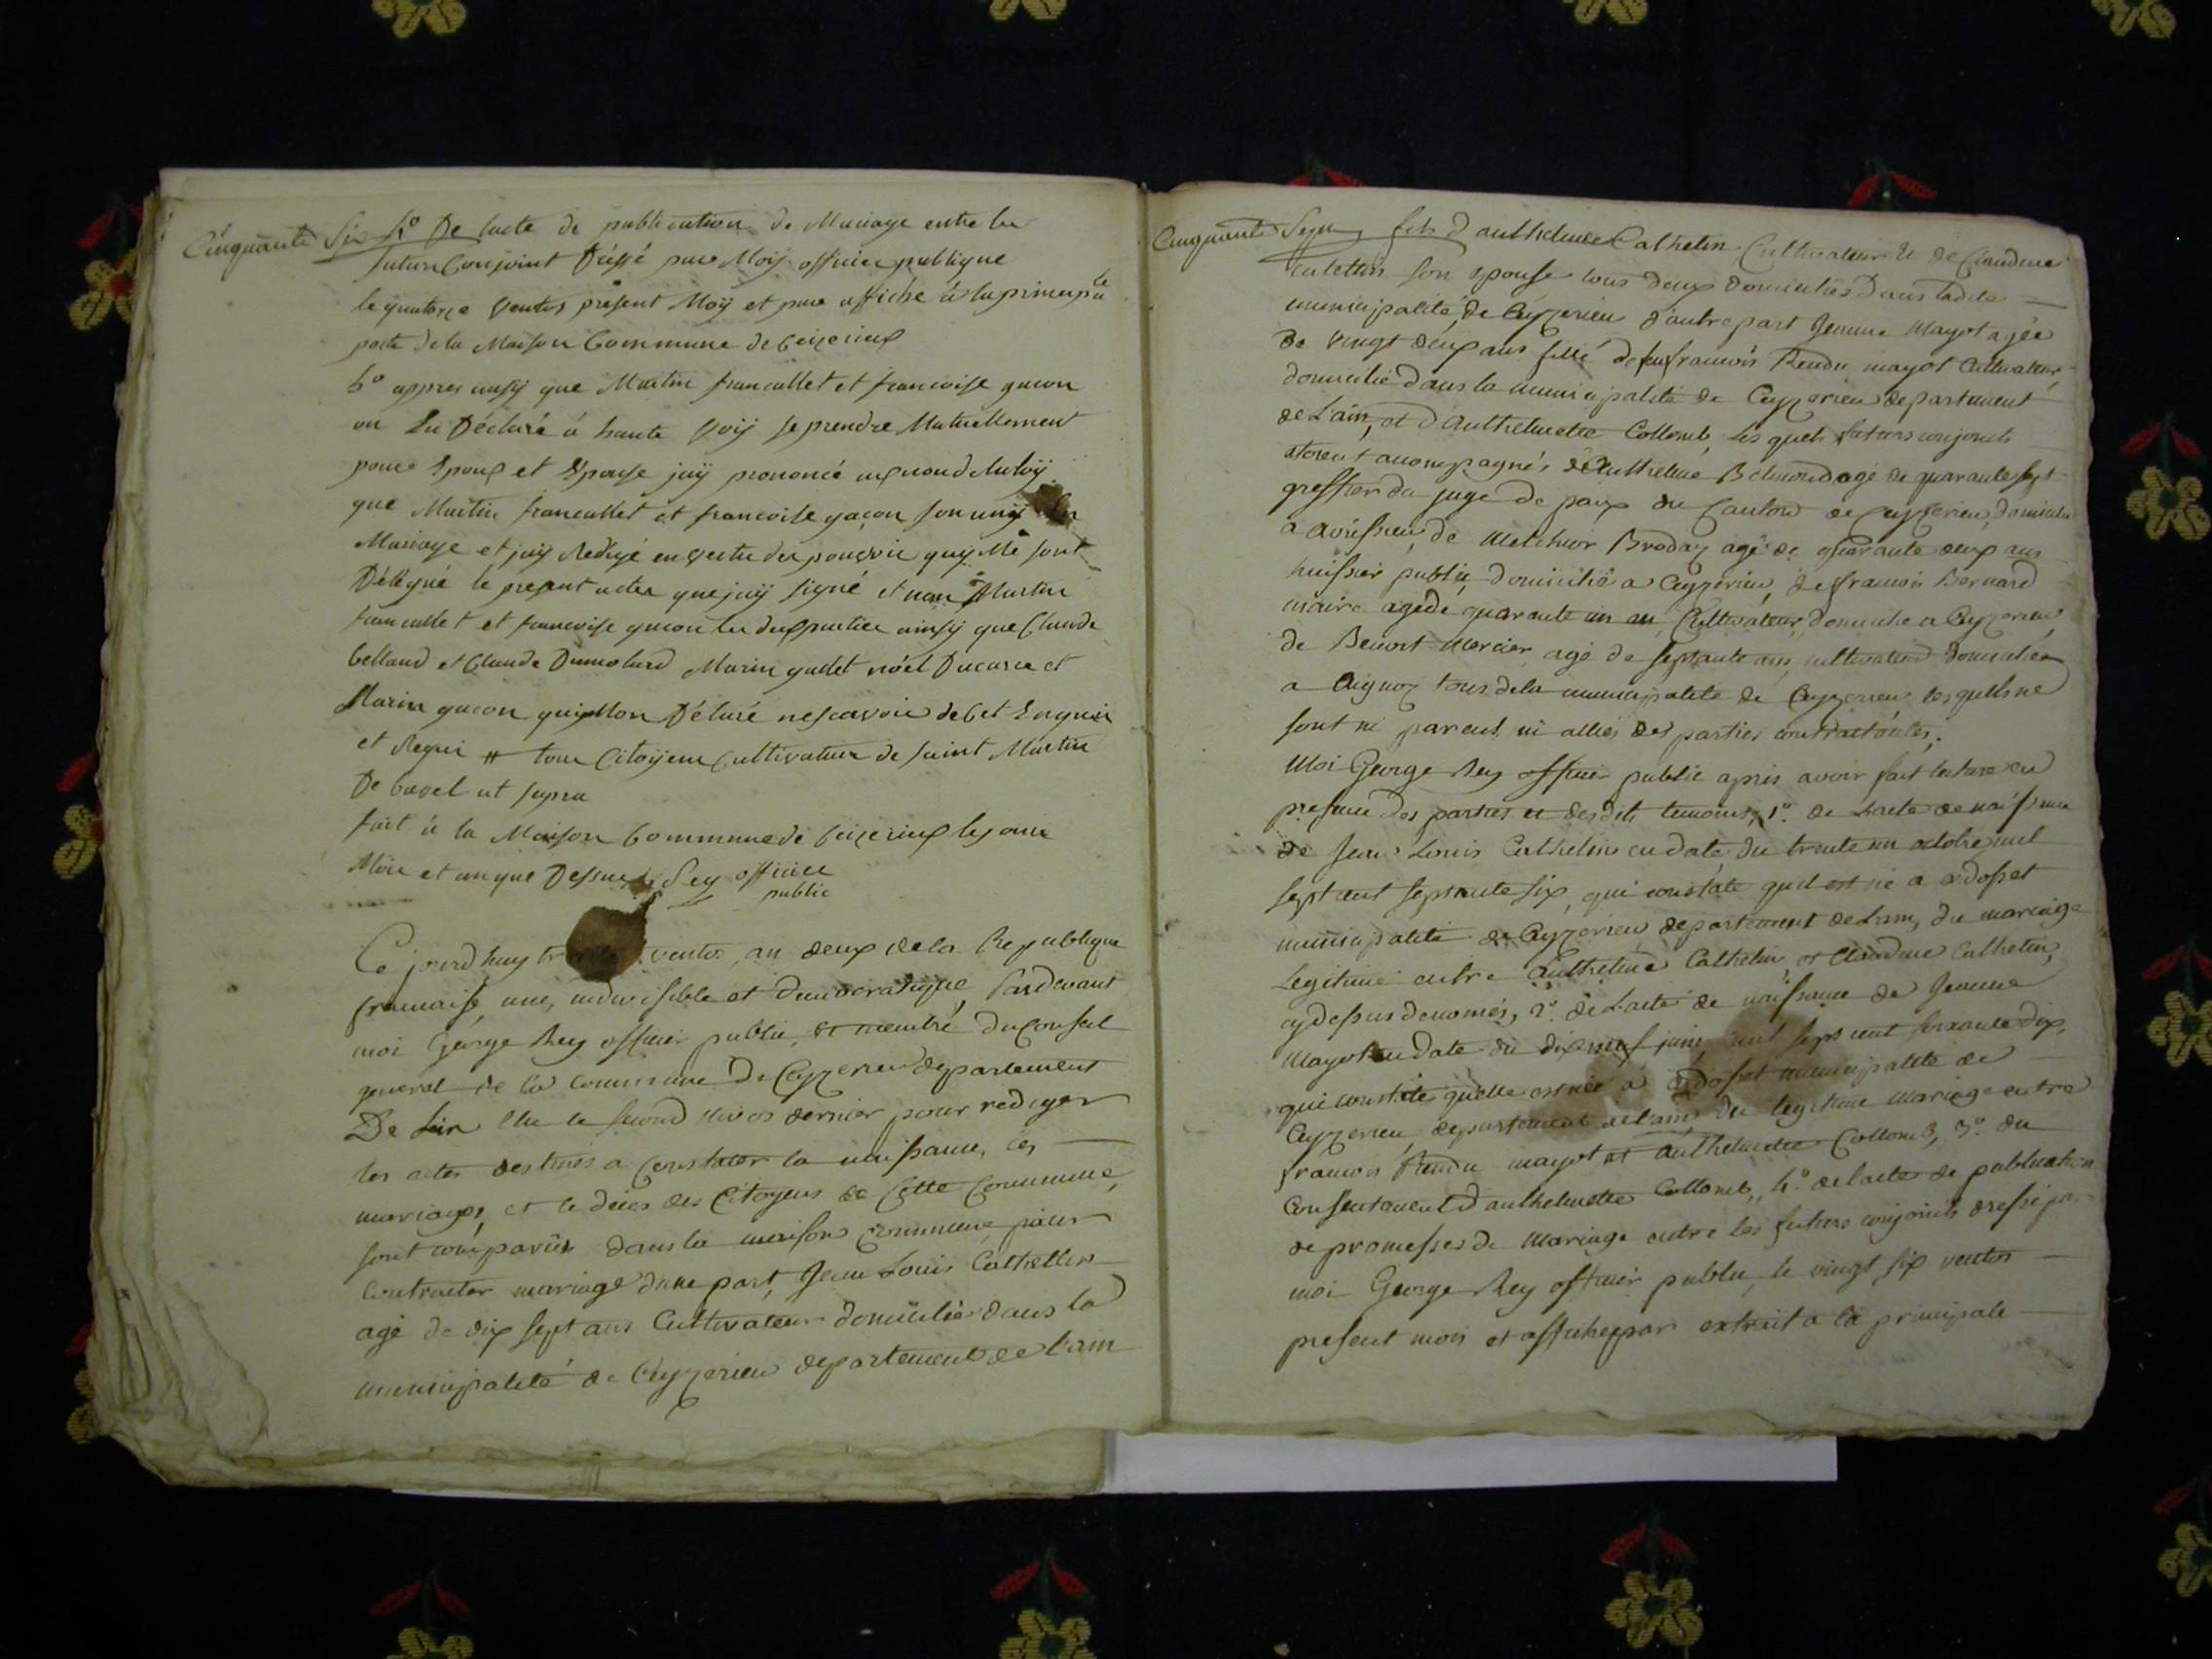 Cinquante Six 4° De lacte de publication de Mariage entre les
futurs Conjoint Dréssé par Moÿ officier publique
le quatorze ventos présent Moÿ et pour affiche à la principalle
porte de la Maison Commune de Ceizerieux
5° appres aussÿ que Martin francallet et francoise gacon
on Eu Déclaré à haute Voiÿ se prendre Mutuellement
pour Epoux et Epouse jaÿ prononcé au nom de la loÿ
que Martin francallet et francoise gaçon son unÿ En
Mariage et jaÿ Redigé en vertu des pouvoir quÿ Me sont
Délégué le present acte que jaÿ signé et non Martin
francallet et francoise gacon les dux partie ainsÿ que Claude
belland et Claude Dumolard Marin gudet noël Ducarre et
Marin gacon qui Mon Déclaré ne scavoir de Cet Enquis
et Requi # tous Citoÿens Cultivateur de saint Martin
De bavel ut supra
fait à la Maison Commune de Ceizerieux les jour
Mois et an que Dessus Rey officier
public
Ce jourd huy trente ventos, an deux de la Republique
francaise, une, indivisible et democratique, Pardevant
moi George Rey officier public, et membre du Conseil
general de la commune de Ceyzerieu departement
De Lain elu le second Nivos dernier pour rediger
les actes destinés a Constater la naissance, les
mariages, et le décès des Citoyens de Cette Commune,
sont comparus dans la maison Commune, pour
Contracter mariage dune part, Jean Louis Cathellin
agé de dix sept ans Cultivateur domicilié dans la
municipalité de Ceyzerieu departement de lain
Cinquante Sept fils d'authelme Cathelin Cultivateur et de Claudine
Catelin son epouse tous deux domiciliés dans ladite
municipalité de Ceyzerieu d'autre part Jeanne Mayot agée
de vingt deux ans fille de feu francois Rendu mayot Cultivateur
domicilié dans la municipalité de Ceyzerieu departement
de Lain, et d'Authelmette Collomb, les quels futurs conjoints
etoient acompagnés d'Authelme Belmond agé de quarante sept
greffier du juge de paix du Canton de Ceyzerieu, domicilié
a avrissieu, de Melchior Broday agé de quarante deux ans
huissier public, domicilié a Ceyzerieu, de francois Bernard
maire agé de quarante un an Cultivateur, domicilié a Ceyzerieu
de Benoit Mercier agé de septante ans, cultivateur domicilié
a Aignoz tous de la municipalité de Ceyzerieu les quels ne
sont ni parens ni alliés des parties contractantes,
Moi George Rey officier public après avoir fait lecture en
presence des parties et des dits temoins, 1°. de Lacte de naissance
de Jean Louis Cathelin en date du trente un octobre mil
sept cent septante six, qui constate quil est né a ardosset
municipalité de Ceyzerieu departement de Lain, du mariage
Legitime entre Authelme Cathelin, et Claudine Cathelin,
cy dessus denomés, 2°. de Lacte de naissance de Jeanne
Mayot en date du dix neuf juin mil sept cent soixante dix,
qui constate quelle est née a ardosset municipalité de
Ceyzerieu, departement de lain, du legitime mariage entre
francois Rendu mayot et Authelmette Collomb, 3°. du
Consentement d'authelmette Collomb, 4°. de lacte de publication
de promesses de Mariage entre les futurs conjoints dressé par
moi George Rey officier public, le vingt six ventos
present mois et affiché par extrait a la principale